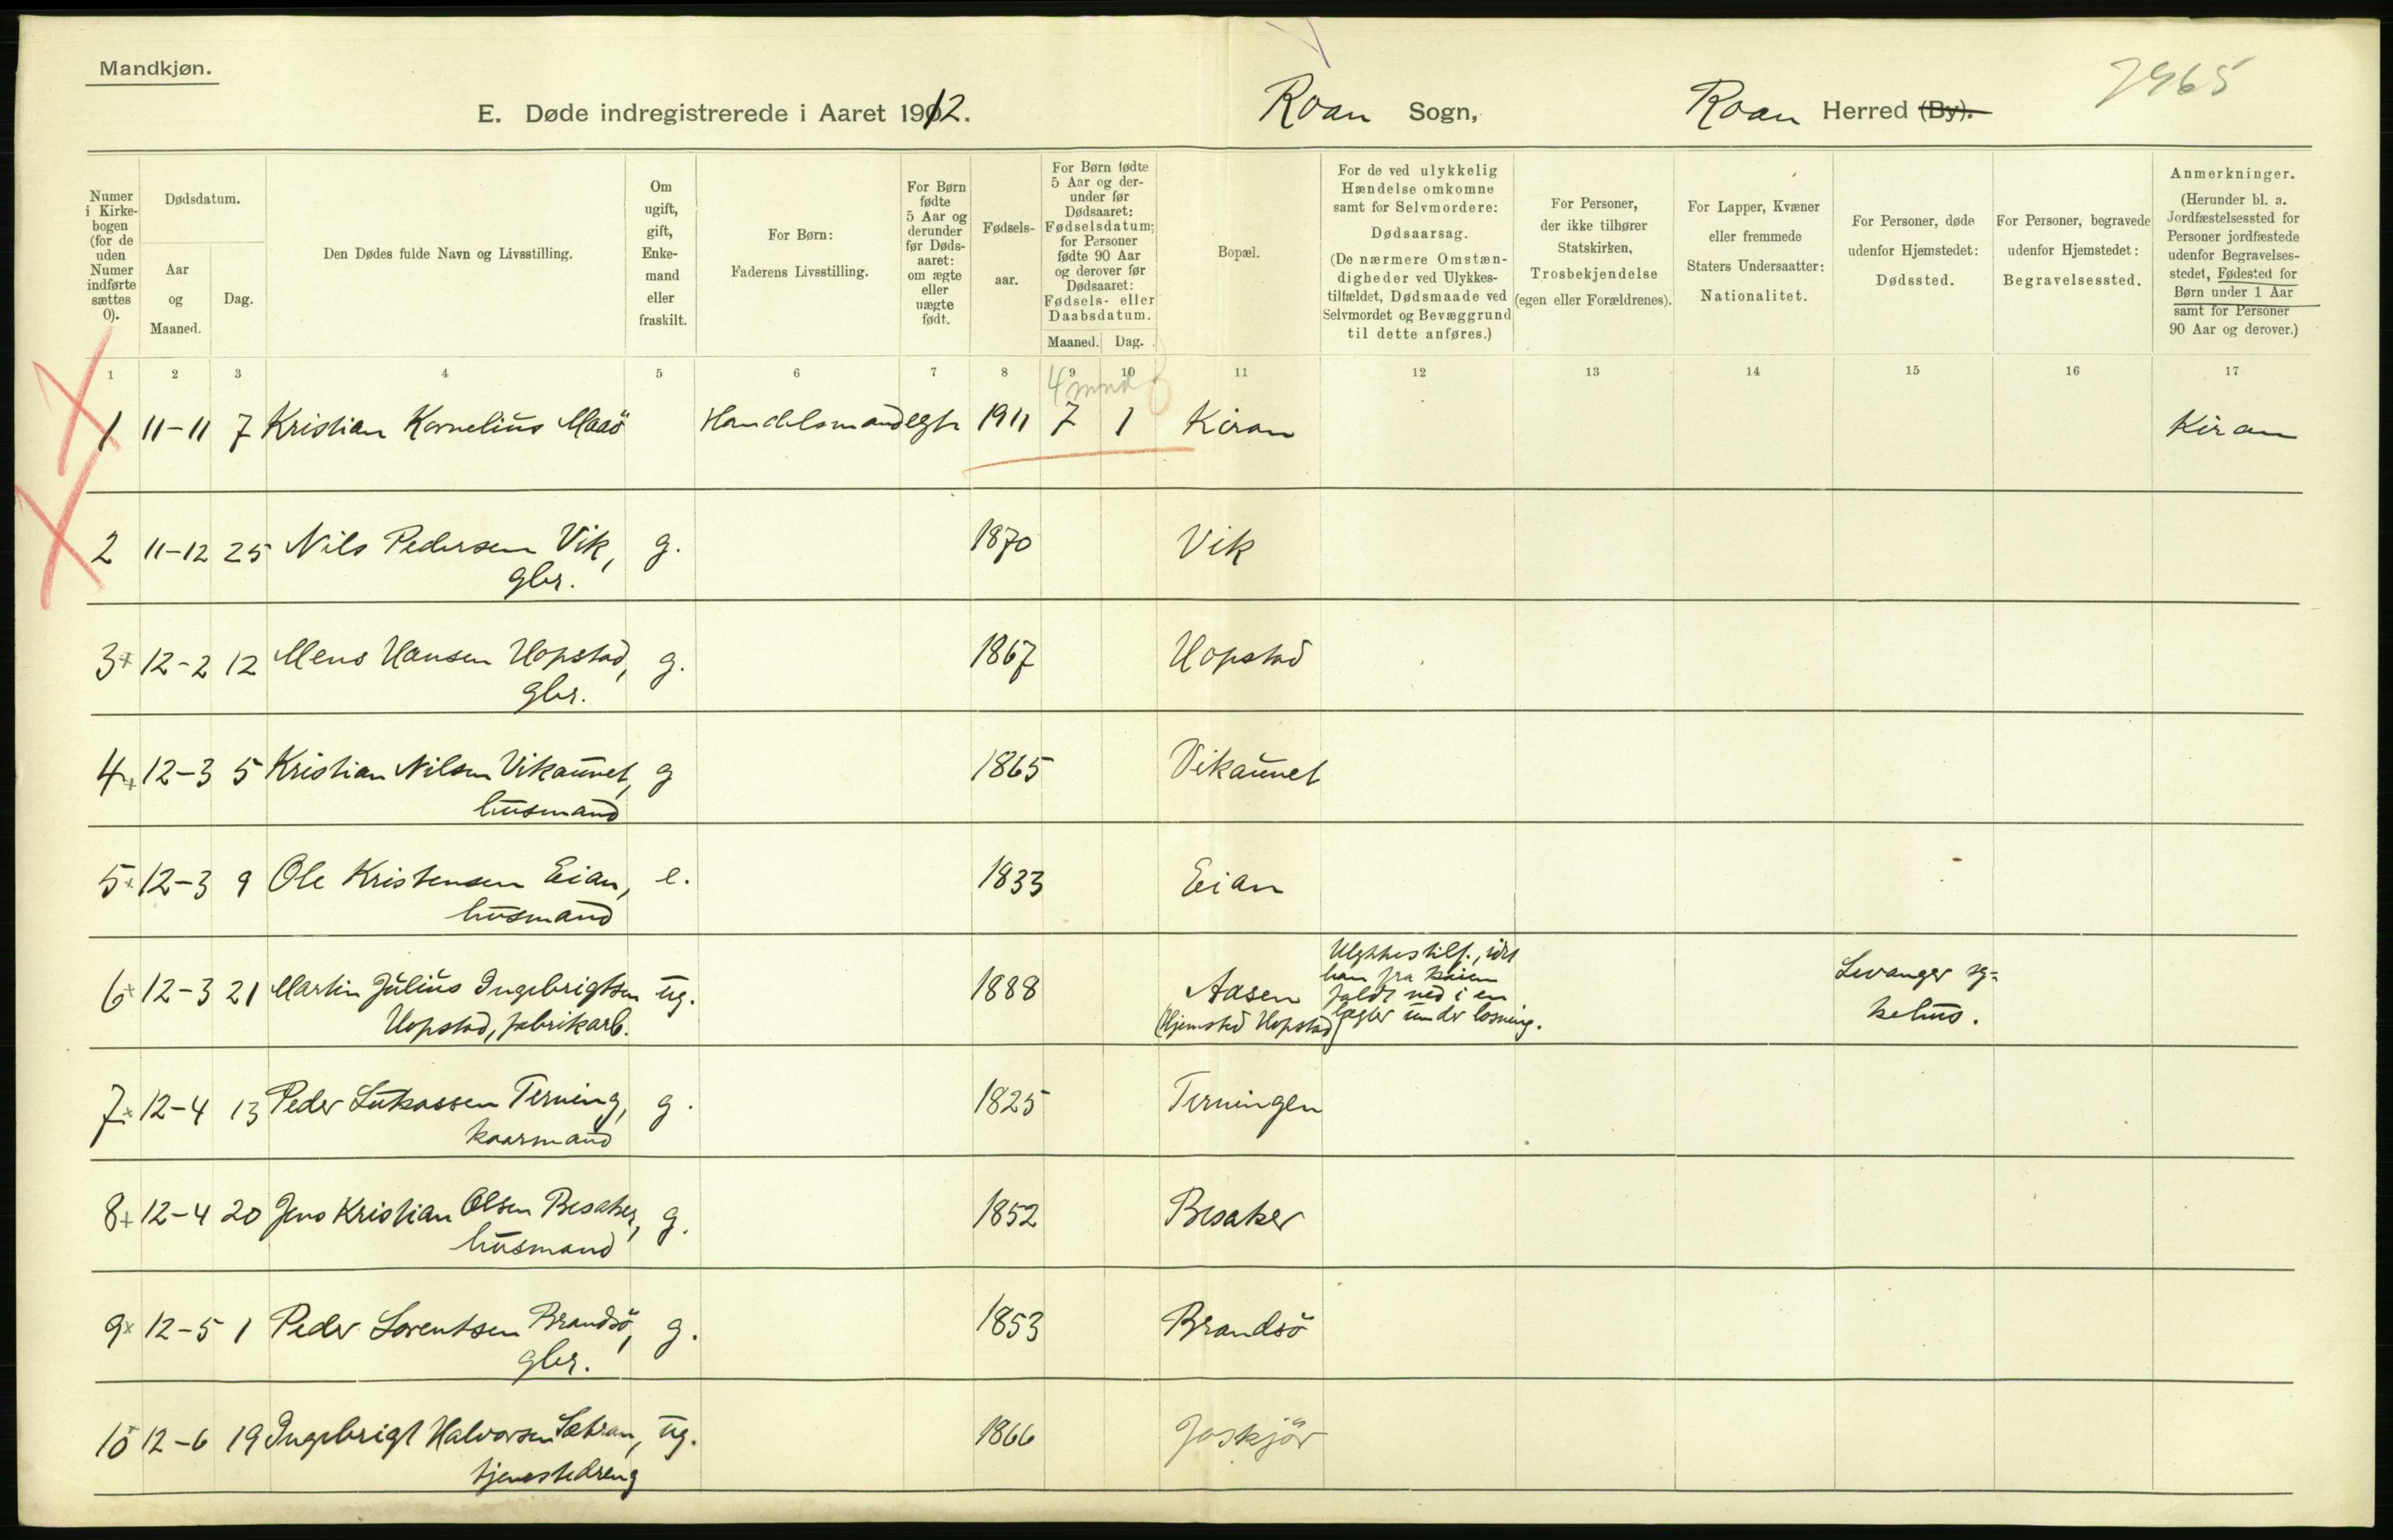 Mandkjøn.
E. Døde indregistrerede i Aaret 1912. Roan Sogn, Roan Herred (By).
7965
Numer i Kirkebogen (for de uden Numer indførte sættes 0).
Dødsdatum.
Aar og Maaned.
Dag.
Den Dødes fulde Navn og Livsstilling.
Om ugift, gift, Enkemand eller fraskilt.
For Børn: Faderens Livsstilling.
For Børn fødte 5 Aar og derunder før Dødsaaret: om ægte eller uægte født.
Fødselsaar.
For Børn fødte 5 Aar og derunder før Dødsaaret: Fødselsdatum; for Personer fødte 90 Aar og derover før Dødsaaret: Fødsels- eller Daabsdatum.
Maaned. Dag.
Bopæl.
For de ved ulykkelig Hændelse omkomne samt for Selvmordere: Dødsaarsag. (De nærmere Omstændigheder ved Ulykkestilfældet, Dødsmaade ved Selvmordet og Bevæggrund til dette anføres.)
For Personer, der ikke tilhører Statskirken, Trosbekjendelse (egen eller Forældrenes).
For Lapper, Kvæner eller fremmede Staters Undersaatter: Nationalitet.
For Personer, døde udenfor Hjemstedet: Dødssted.
For Personer, begravede udenfor Hjemstedet: Begravelsessted.
Anmerkninger. (Herunder bl. a. Jordfæstelsessted for Personer jordfæstede udenfor Begravelsesstedet, Fødested for Børn under 1 Aar samt for Personer 90 Aar og derover.)
1 2 3 4 5 6 7 8 9 10 11 12 13 14 15 16 17
4 mnd
1 11-11 7 Kristian Kornelius Maasö Handelsmand egte 1911 7 1 Kiran Kiran
2 11-12 25 Nils Pedersen Vik, g. 1870 Vik
gbr.
3+ 12-2 12 Mens Hansen Hopstad, g. 1867 Hopstad
gbr.
4+ 12-3 5 Kristian Nilsen Vikaunet, g 1865 Vikaunet
husmand
5+ 12-3 9 Ole Kristensen Eian, e. 1833 Eian
husmand
6+ 12-3 21 Martin Julius Ingebrigtsen ug. 1888 Aasen
Hopstad, fabrikarb. (Hjemsted Hopstad)
Ulykkestilf., idet
han fra kaien
faldt ned i en
lægter under losning.
Levanger sy-
kehus.
7+ 12-4 13 Peder Lukassen Terning, g. 1825 Terningen
kaarmand
8+ 12-4 20 Jens Kristian Olsen Besaker, g. 1852 Besaker
husmand
9x 12-5 1 Peder Lorentsen Brandsö, g. 1853 Brandsö
gbr.
10 12-6 19 Ingebrigt Halvorsen Sætran, ug. 1866 Joskjör
tjenestedreng